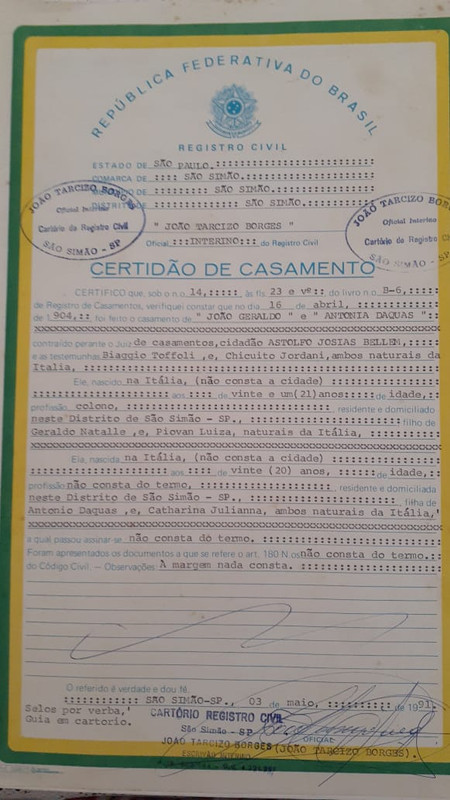 REPÚBLICA FEDERATIVA DO BRASIL
REGISTRO CIVIL
ESTADO DE SÃO PAULO.:::::::::::::::::::::::::
COMARCA DE :::: SÃO SIMÃO.:::::::::::::::::::::
DE :::::::::: SÃO SIMÃO.::::::::::::::::
DISTRITO DE ::::::::::::: SÃO SIMÃO.::::::::::::
JOÃO TARCIZO BORGES
Oficial Interino
Cartório de Registro Civil
SÃO SIMÃO - SP
JOÃO TARCIZO BORGES
Oficial Interino
Cartório de Registro
SÃO SIMÃO - SP
" JOÃO TARCIZO BORGES "
Oficial :::INTERINO::: do Registro Civil
CERTIDÃO DE CASAMENTO
CERTIFICO que, sob o n.o 14,::::: às fls 23 e vº:: do livro n.o B-6,::::::
de Registro de Casamentos, verifiquei constar que no dia 16 de abril,:::::::
de 1.904,:: foi feito o casamento de " JOÃO GERALDO " e " ANTONIA DAQUAS "::
xxxxxxxxxxxxxxxxxxxxxxxxxxxxxxxxxxxxxxxxxxxxxxxxxxxxxxxx
contraído perante o Juiz de casamentos,cidadão ASTOLFO JOSIAS BELLEM,:::::
e as testemunhas Biaggio Toffoli ,e, Chicuito Jordani,ambos naturais da
Italia, ::::::::::::::::::::::::::::::::::::::::::::::::
Ele, nascido na Itália, (não consta a cidade) ::::::::::::::::::
:::::::::::::::::::: aos :::: de vinte e um(21)anos:::: de idade,::
profissão colono, :::::::::::::::::::::::::: residente e domiciliado
neste Distrito de São Simão - SP., :::::::::::::::::::: filho de
Geraldo Natalle ,e, Piovan Luiza, naturais da Itália, ::::::::::::
xxxxxxxxxxxxxxxxxxxxxxxxxxxxxxxxxxxxxxxxxxxxxxxxxxxxxxxx
Ela, nascida na Itália, (não consta a cidade) ::::::::::::::::::
:::::::::::::::::::: aos :::: de vinte (20) anos, :::::: de idade,::
profissão não consta do termo, :::::::::::: residente e domiciliada
neste Distrito de São Simão - SP., :::::::::::::::::::: filha de
Antonio Daquas ,e, Catharina Julianna, ambos naturais da Itália,'
xxxxxxxxxxxxxxxxxxxxxxxxxxxxxxxxxxxxxxxxxxxxxxxxxxxxxxxx
a qual passou assinar-se não consta do termo. ::::::::::::::::::::
Foram apresentados os documentos a que se refere o art. 180 N.os não consta do termo.::
do Código Civil. — Observações: À margem nada consta. ::::::::::::::
O referido é verdade e dou fé.
:::::::::: SÃO SIMÃO-SP., 03 de maio, :::::::::: de 1991.
Selos por verba,'
Guia em cartorio.
CARTÓRIO REGISTRO CIVIL
São Simão - SP
OFICIAL
JOÃO TARCIZO BORGES (JOÃO TARCIZO BORGES).
ESCRIVÃO INTERINO